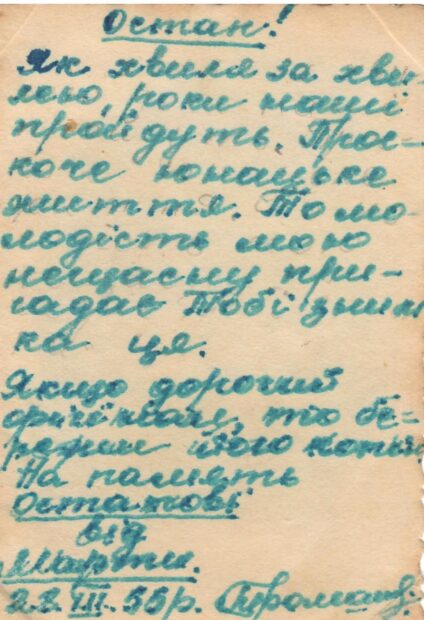 Остап!
Як хвиля за хви-
лею, роки наші
пройдуть. Прос-
коче юнацьке
життя. То мо-
лодість мою
нещасну при-
гадає Тобі знім
ка ця.
Якщо дорогий
оригінал, то бе-
режи його копію
На память
Остапові
від
Марти.
22 III. 55р.